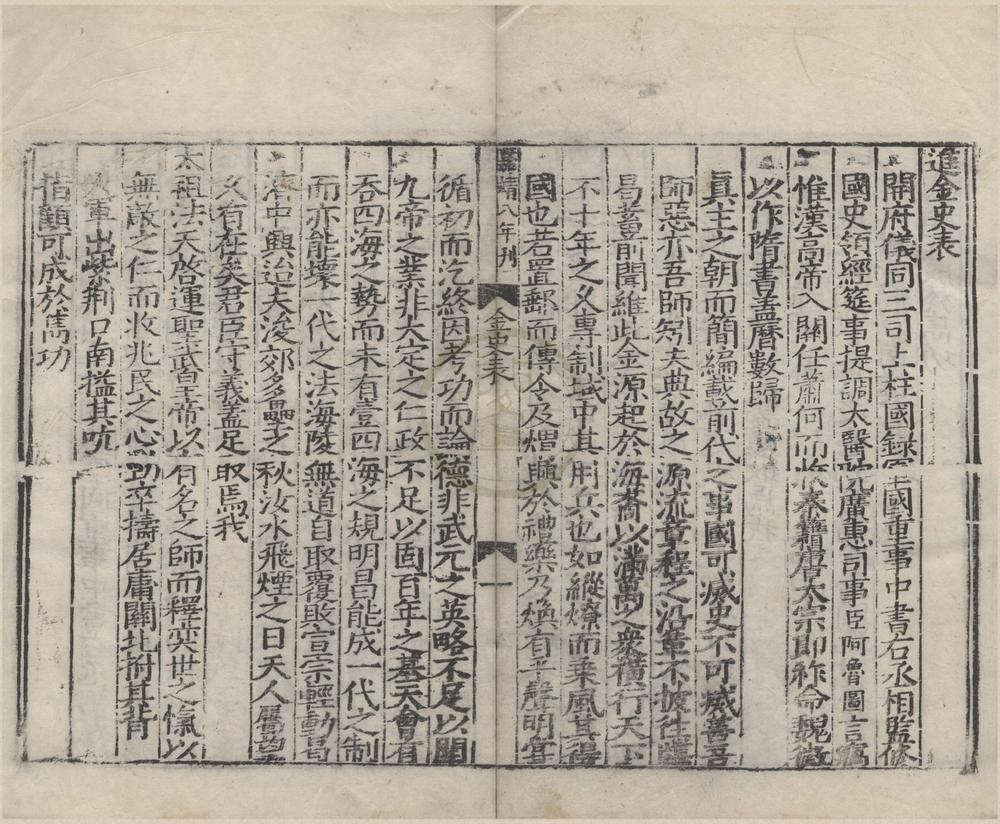 進金史表
開府儀同三司上柱國錄軍國重事中書右丞相監修
國史領經筵事提調太醫院廣惠司事臣阿魯圖言竊
惟漢高帝入關任蕭何而收秦籍唐太宗即祚命魏徵
以作隋書蓋曆數歸
真主之朝而簡編載前代之事國可滅史不可滅善吾
師惡亦吾師矧夫典故之源流章程之沿革不披往牒
曷蓄前聞維此金源起於海裔以滿萬之衆橫行天下
不十年之久專制域中其用兵也如縱燎而乗風其得
國也若置郵而傳令及煟興於禮樂乃煥有乎聲明嘗
嘉靖八年刊
金史表
一
循初而汔終因考功而論德非武元之英略不足以開
九帝之業非大定之仁政不足以固百年之基天會有
吞四海之勢而未有壹四海之規明昌能成一代之制
而亦能壞一代之法海陵無道自取覆敗宣宗輕動曷
濟中興迨夫浚郊多壘之秋汝水飛煙之日天人屬望
久有在矣君臣守義蓋足取焉我
太祖法天啓運聖武皇帝以有名之師而釋奕世之愾以
無敵之仁而收兆民之心勁卒擣居庸關北拊其背
大軍出紫荆口南搤其吭
指顧可成於雋功